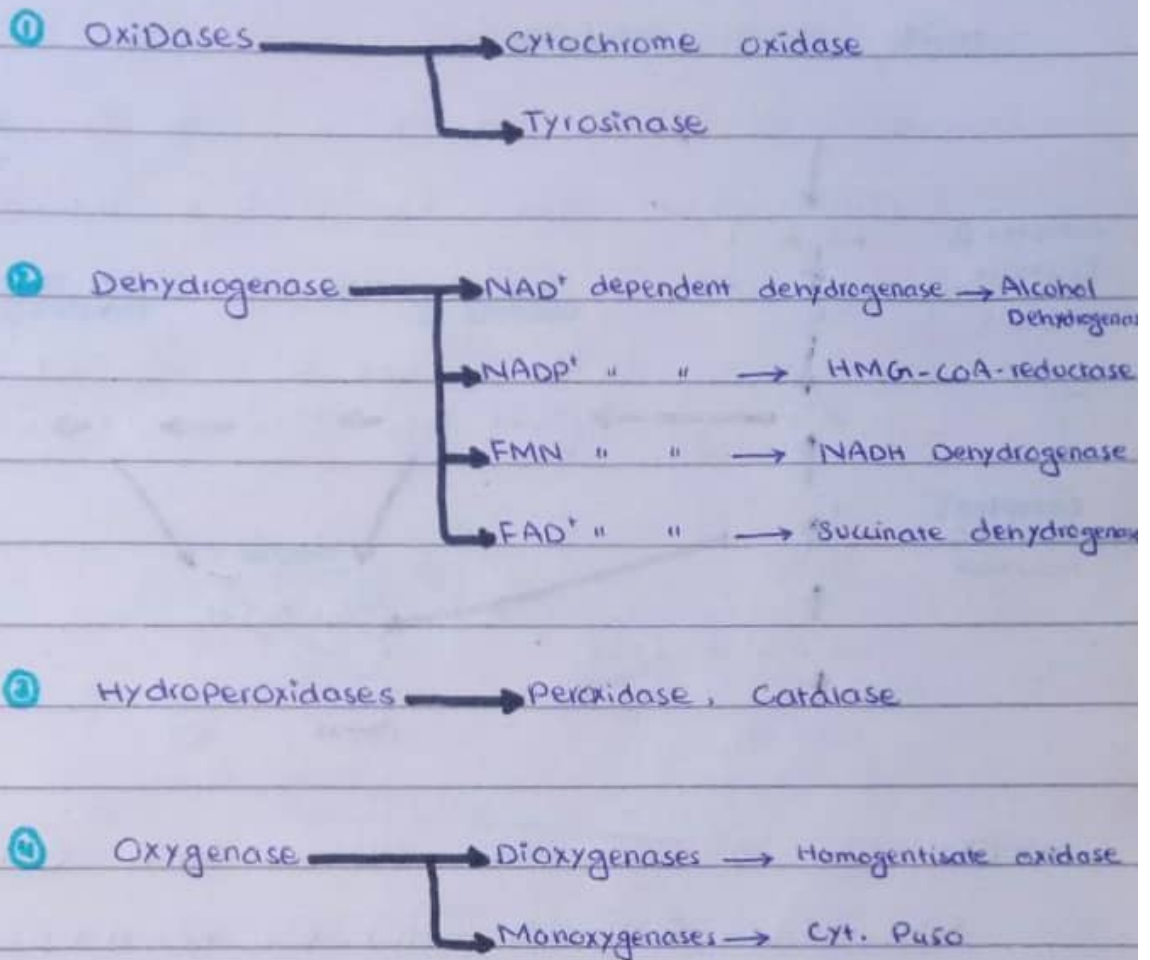 ① OxiDases → Cytochrome oxidase
→ Tyrosinase
② Dehydrogenase → NAD⁺ dependent dehydrogenase → Alcohol
Dehydrogenas
→ NADP⁺ " " → HMG-COA-reductase
→ FMN " " → NADH Dehydrogenase
→ FAD⁺ " " → Succinate dehydrogenas
③ Hydroperoxidases → Peroxidase, Catalase
④ Oxygenase → Dioxygenases → Homogentisate oxidase
→ Monoxygenases → Cyt. P450